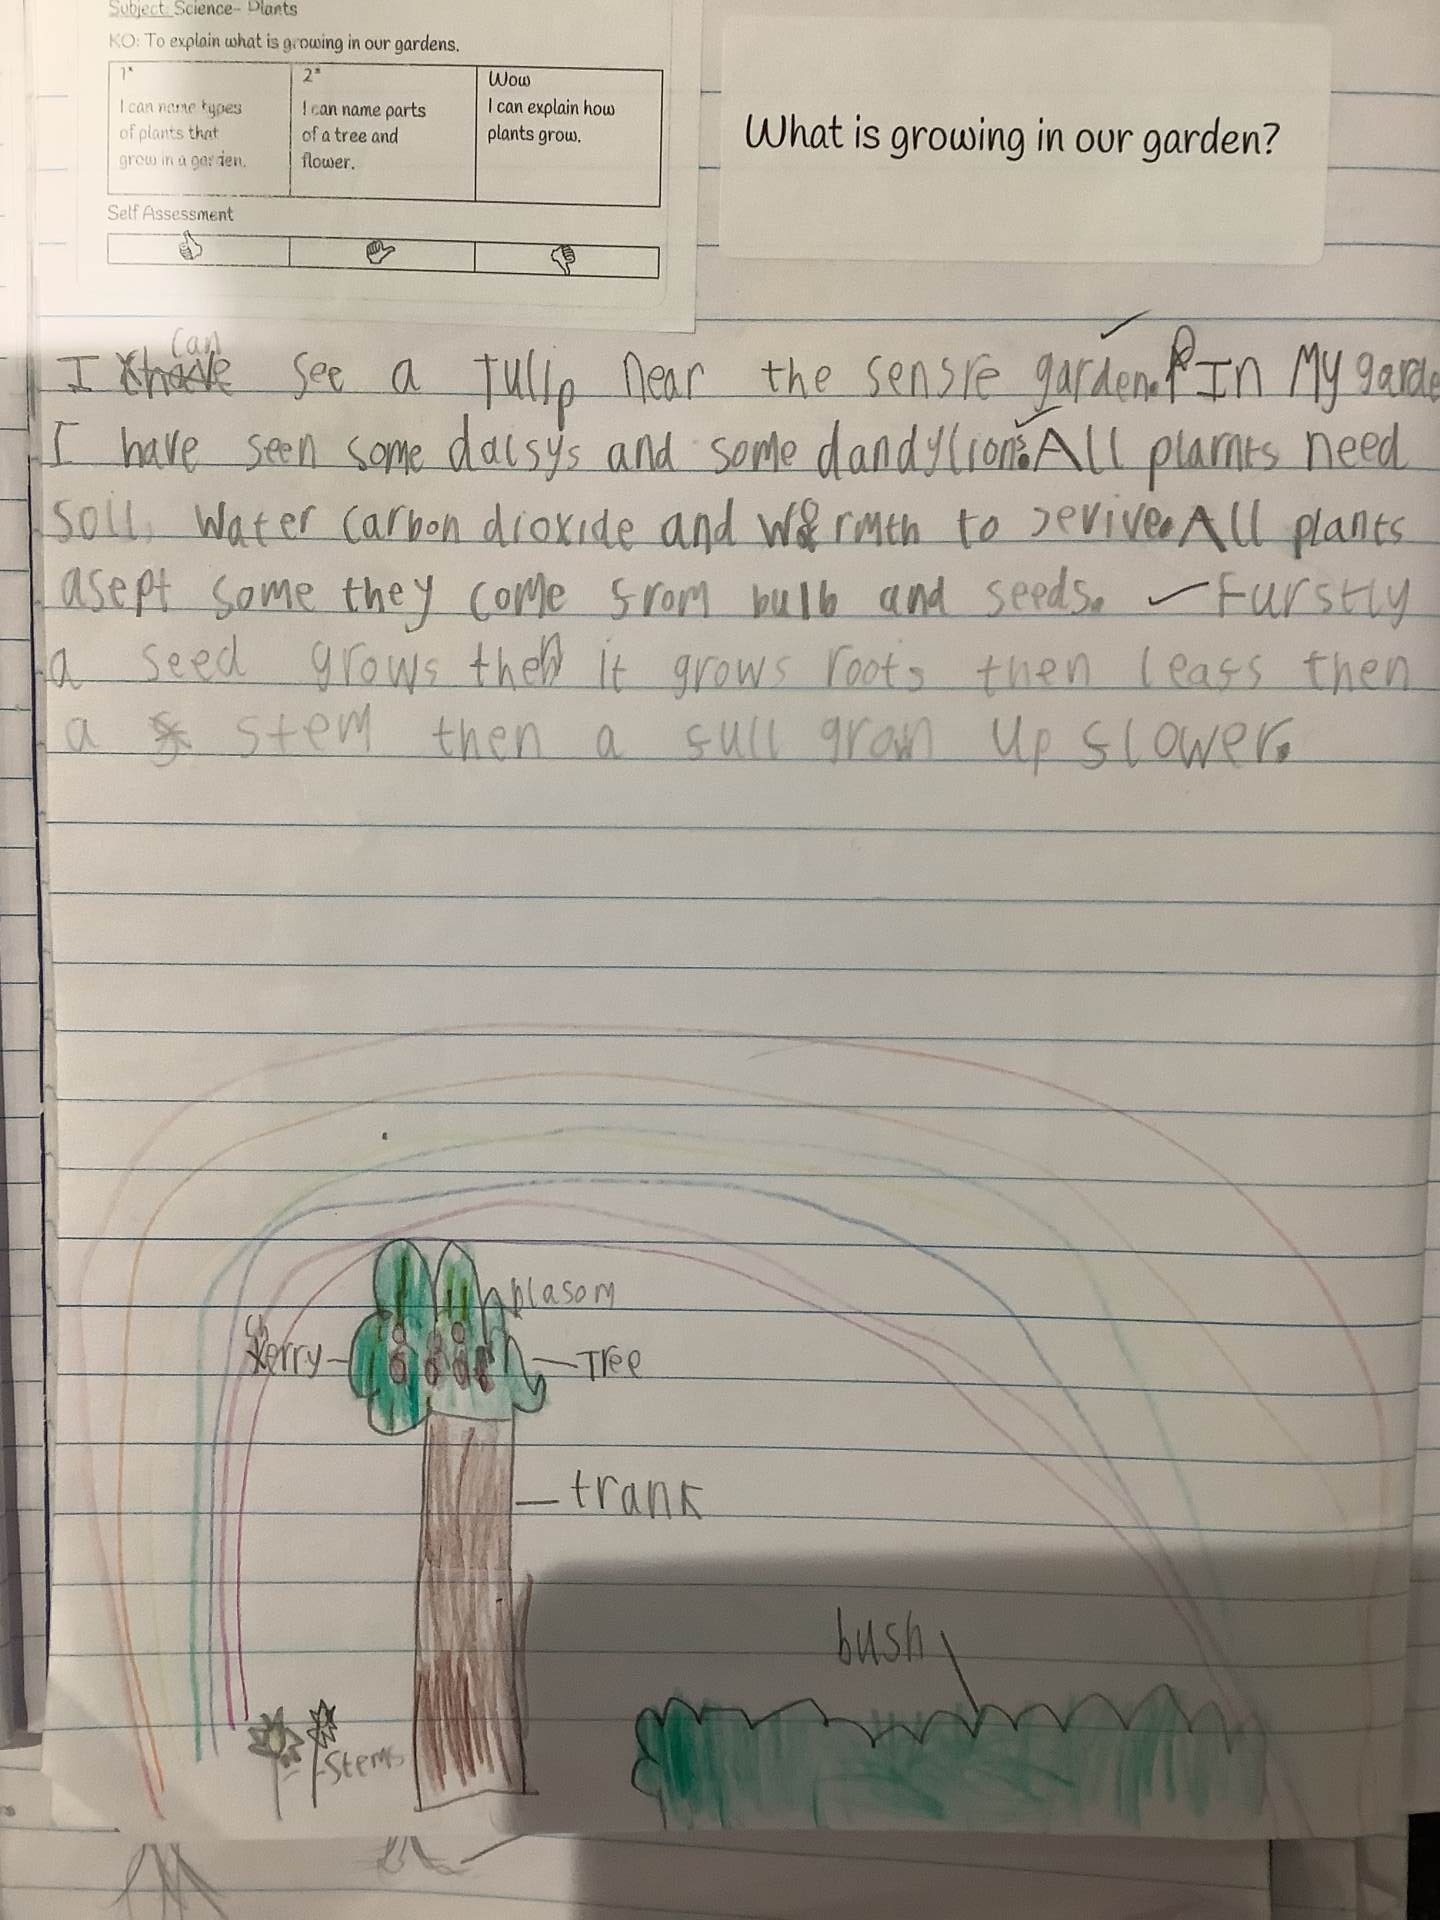 Subject: Science- Plants
KO: To explain what is growing in our gardens.
1*
I can name types
of plants that
grow in a garden.
2*
I can name parts
of a tree and
flower.
Wow
I can explain how
plants grow.
Self Assessment
What is growing in our garden?
can
I see a Tulip near the sensre garden. In My garde
I have seen some daisys and some dandylions. All plarnts need
soil, water carbon dioxide and warmth to revive. All plants
asept some they come from bulb and seeds. Furstly
a seed grows then it grows roots then leafs then
a stem then a full grown up flower.
blasom
Cherry
Tree
trank
bush
Stems